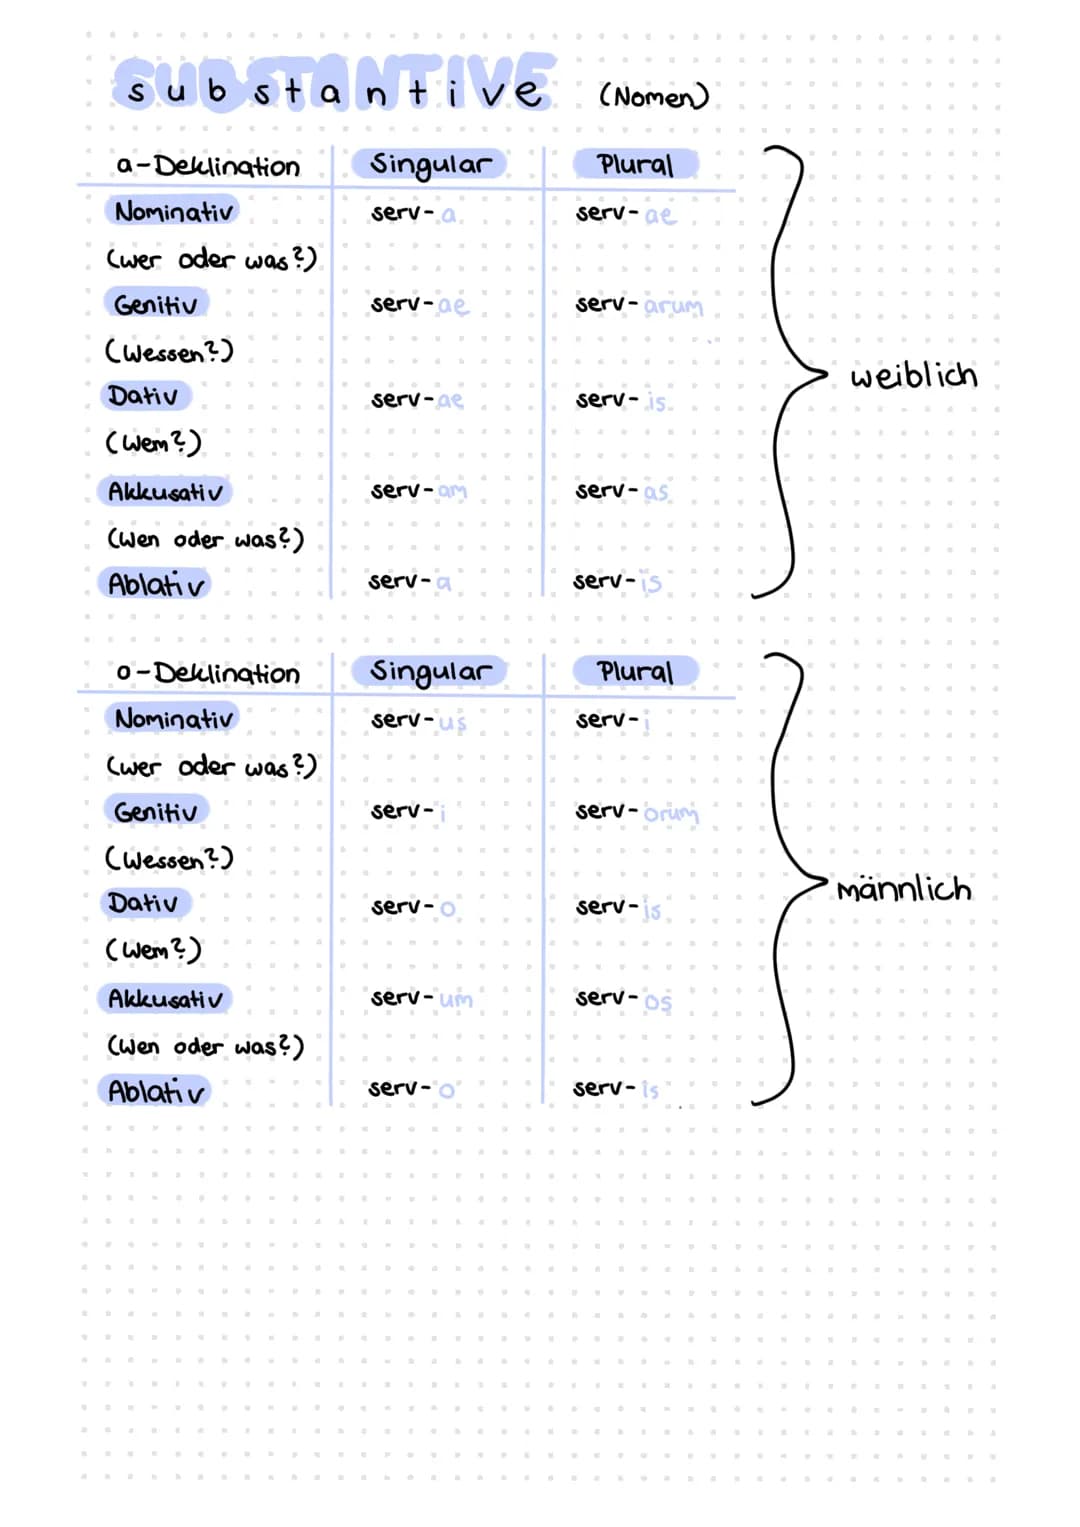 substantive (Nomen)
a-Deklination Singular Plural
Nominativ serv-a serv-ae
(wer oder was?)
Genitiv serv-ae serv-arum
(Wessen?)
weiblich
Dativ serv-ae serv-is
(Wem?)
Akkusativ serv-am serv-as
(Wen oder was?)
Ablativ serv-a serv-is
o-Deklination Singular Plural
Nominativ serv-us serv-i
(wer oder was?)
Genitiv serv-i serv-orum
(Wessen?)
männlich
Dativ serv-o serv-is
(Wem?)
Akkusativ serv-um serv-os
(Wen oder was?)
Ablativ serv-o serv-is